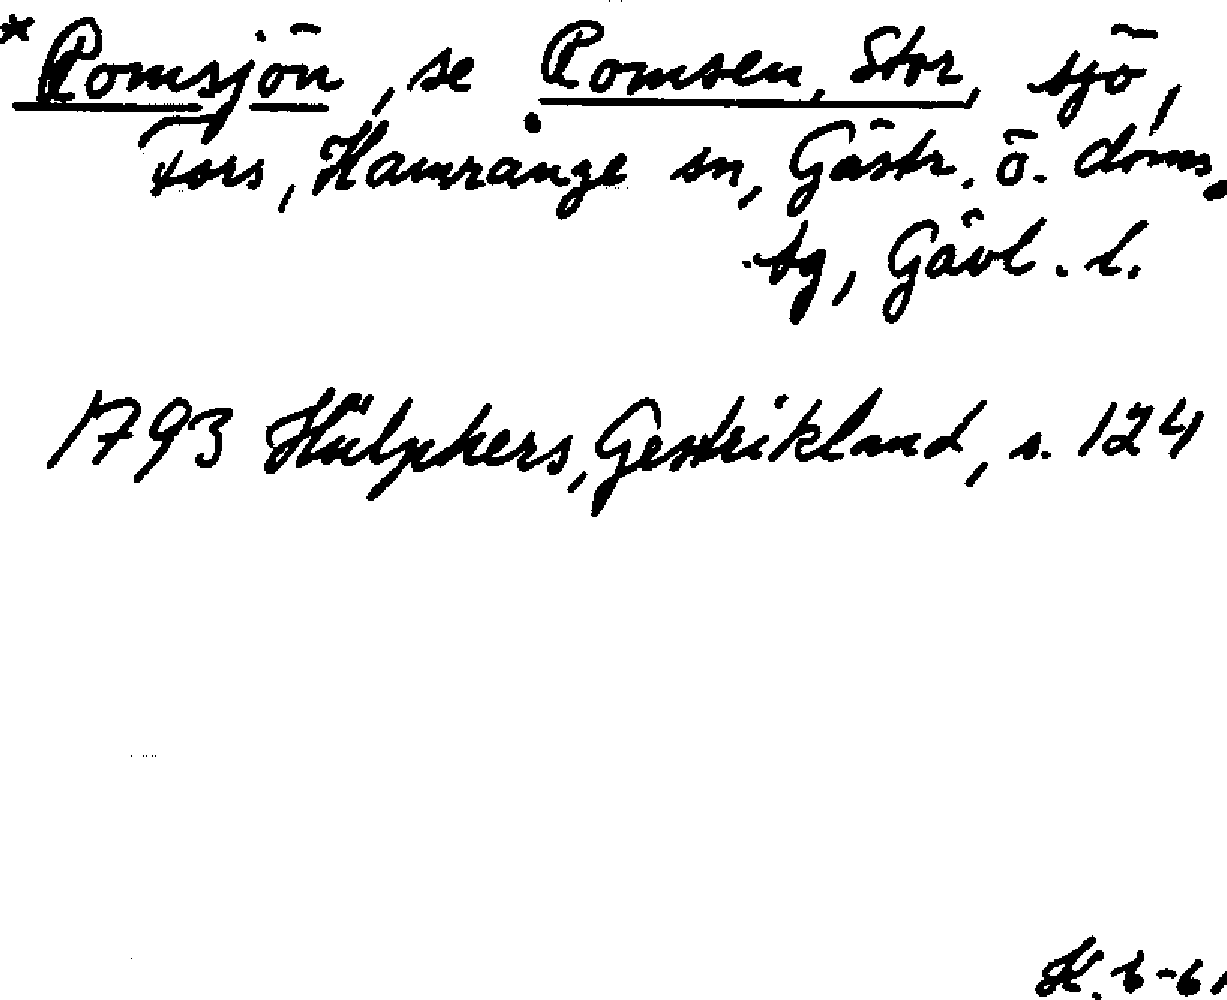 *Romsjön, se Romsen, Stor, sjö,
Fors, Hamrånge sn, Gästr. ö. doms.
tg, Gävl. l.
1793 Hülphers, Gestrikland, s. 124